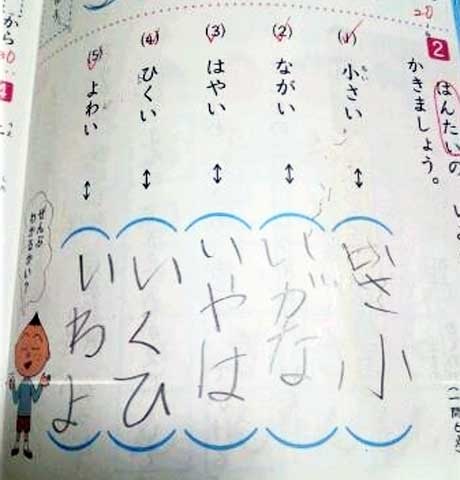 2 はんたいの い
かきましょう。
(1) 小さい ↔ いさ小
ちい
(2) ながい ↔ いがな
(3) はやい ↔ いやは
(4) ひくい ↔ いくひ
(5) よわい ↔ いわよ
ぜんぶ
わかるかい?
から